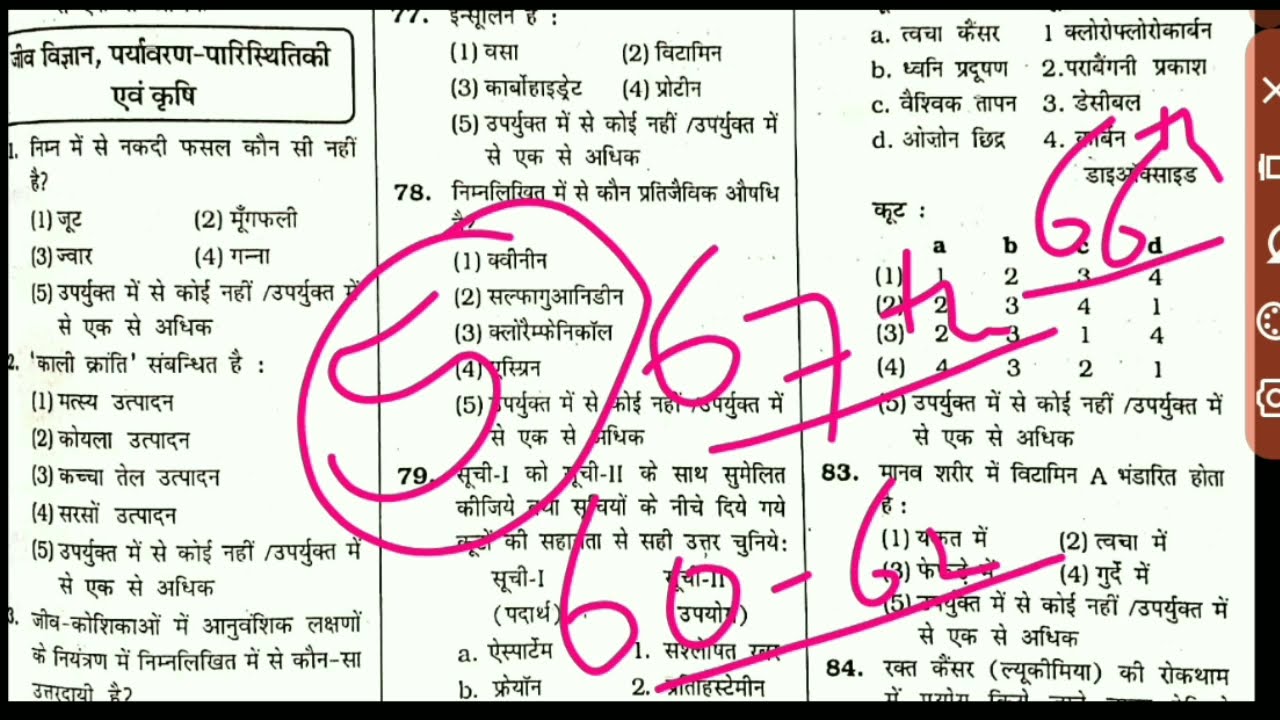 जीव विज्ञान, पर्यावरण-पारिस्थितिकी
एवं कृषि
1. निम्न में से नकदी फसल कौन सी नहीं
है?
(1) जूट (2) मूँगफली
(3) ज्वार (4) गन्ना
(5) उपर्युक्त में से कोई नहीं /उपर्युक्त में
से एक से अधिक
2. 'काली क्रांति' संबन्धित है :
(1) मत्स्य उत्पादन
(2) कोयला उत्पादन
(3) कच्चा तेल उत्पादन
(4) सरसों उत्पादन
(5) उपर्युक्त में से कोई नहीं /उपर्युक्त में
से एक से अधिक
3. जीव-कोशिकाओं में आनुवंशिक लक्षणों
के नियंत्रण में निम्नलिखित में से कौन-सा
उत्तरदायी है?
77. इन्सूलिन है :
(1) वसा (2) विटामिन
(3) कार्बोहाइड्रेट (4) प्रोटीन
(5) उपर्युक्त में से कोई नहीं /उपर्युक्त में
से एक से अधिक
78. निम्नलिखित में से कौन प्रतिजैविक औषधि
है?
(1) क्वीनीन
(2) सल्फागुआनिडीन
(3) क्लोरैम्फेनिकॉल
(4) एस्प्रिन
(5) उपर्युक्त में से कोई नहीं /उपर्युक्त में
से एक से अधिक
79. सूची-I को सूची-II के साथ सुमेलित
कीजिये तथा सूचियों के नीचे दिये गये
कूटों की सहायता से सही उत्तर चुनिये:
सूची-I सूची-II
(पदार्थ) (उपयोग)
a. ऐस्पार्टेम 1. संश्लेषित रबर
b. फ्रेयॉन 2. प्रतिहिस्टेमीन
a. त्वचा कैंसर 1 क्लोरोफ्लोरोकार्बन
b. ध्वनि प्रदूषण 2.पराबैंगनी प्रकाश
c. वैश्विक तापन 3. डेसीबल
d. ओज़ोन छिद्र 4. कार्बन
डाइऑक्साइड
कूट :
a b c d
(1) 1 2 3 4
(2) 2 3 4 1
(3) 2 3 1 4
(4) 4 3 2 1
(5) उपर्युक्त में से कोई नहीं /उपर्युक्त में
से एक से अधिक
83. मानव शरीर में विटामिन A भंडारित होता
है :
(1) यकृत में (2) त्वचा में
(3) फेफड़े में (4) गुर्दे में
(5) उपर्युक्त में से कोई नहीं /उपर्युक्त में
से एक से अधिक
84. रक्त कैंसर (ल्यूकीमिया) की रोकथाम
5
67th
66th
60-62